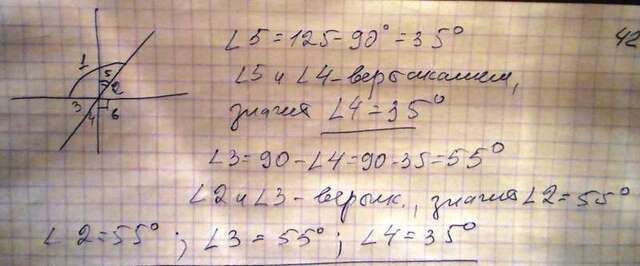 42
1
5
2
3
4
6
∠5=125-90°=35°
∠5 и ∠4-вертикальн,
значит ∠4=35°
∠3=90-∠4=90-35=55°
∠2 и ∠3-вертик., значит ∠2=55°
∠2=55°; ∠3=55°; ∠4=35°